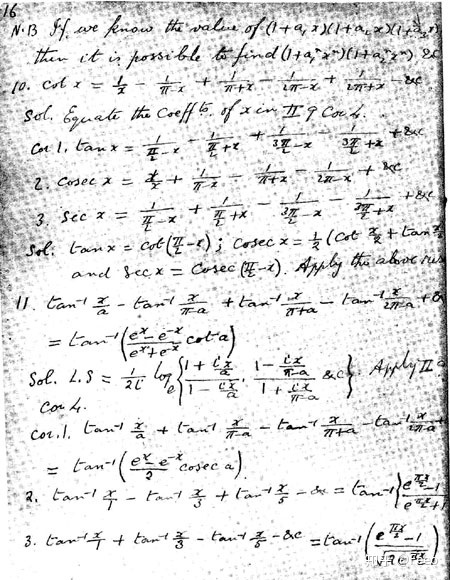 16
N.B If we know the value of (1+a₁x)(1+a₂x)(1+a₃x)
then it is possible to find (1+a₁ⁿxⁿ)(1+a₂ⁿxⁿ) &c
10. cot x = 1/x − 1/(π−x) + 1/(π+x) − 1/(2π−x) + 1/(2π+x) − &c
Sol. Equate the coeffts of x in II 9 Cor 4.
Cor 1. tan x = 1/(π/2−x) − 1/(π/2+x) + 1/(3π/2−x) − 1/(3π/2+x) + &c
2. cosec x = 1/x + 1/(π−x) − 1/(π+x) − 1/(2π−x) + &c
3. Sec x = 1/(π/2−x) + 1/(π/2+x) − 1/(3π/2−x) − 1/(3π/2+x) + &c
Sol. tan x = cot(π/2−x); Cosec x = ½(cot x/2 + tan x/2
and Sec x = Cosec(π/2−x). Apply the above
11. tan⁻¹ x/a − tan⁻¹ x/(π−a) + tan⁻¹ x/(π+a) − tan⁻¹ x/(2π−a) + &
= tan⁻¹((eˣ−e⁻ˣ)/(eˣ+e⁻ˣ) cot a)
Sol. L.S = 1/(2i) logₑ{(1+ix/a)/(1−ix/a) · (1−ix/(π−a))/(1+ix/(π−a)) &c} Apply II 9
Cor 4.
Cor. 1. tan⁻¹ x/a + tan⁻¹ x/(π−a) − tan⁻¹ x/(π+a) − tan⁻¹ x/(2π−a) +
= tan⁻¹((eˣ−e⁻ˣ)/2 cosec a)
2. tan⁻¹ x/1 − tan⁻¹ x/3 + tan⁻¹ x/5 − &c = tan⁻¹{(e^(πx/2)−1)/(e^(πx/2)+1)
3. tan⁻¹ x/1 + tan⁻¹ x/3 − tan⁻¹ x/5 − &c = tan⁻¹((e^(πx/2)−1)/√